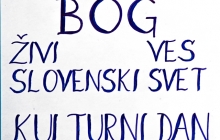 BOG
ŽIVI VES
SLOVENSKI SVET
KULTURNI DAN